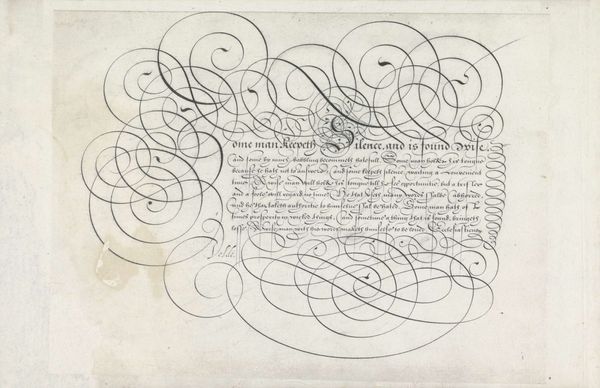 Some man keepeth Silence, and is found Wise,
and some by much babbling becommeth hatefull. Some man holdeth his tongue
because he hath not to answere, and some keepeth silence, waiting a convenient
time. A wise man will hold his tongue till he see opportunitie: but a trifler
and a foole will regard no time. He that useth many words shalbe abhorred,
and he that taketh authoritie to himselfe shal be hated. Some man hath oft
times prosperity in wicked things, and sometime a thing that is found, bringeth
losse. A wise man with his words maketh himselfe to be loved.
Velde.